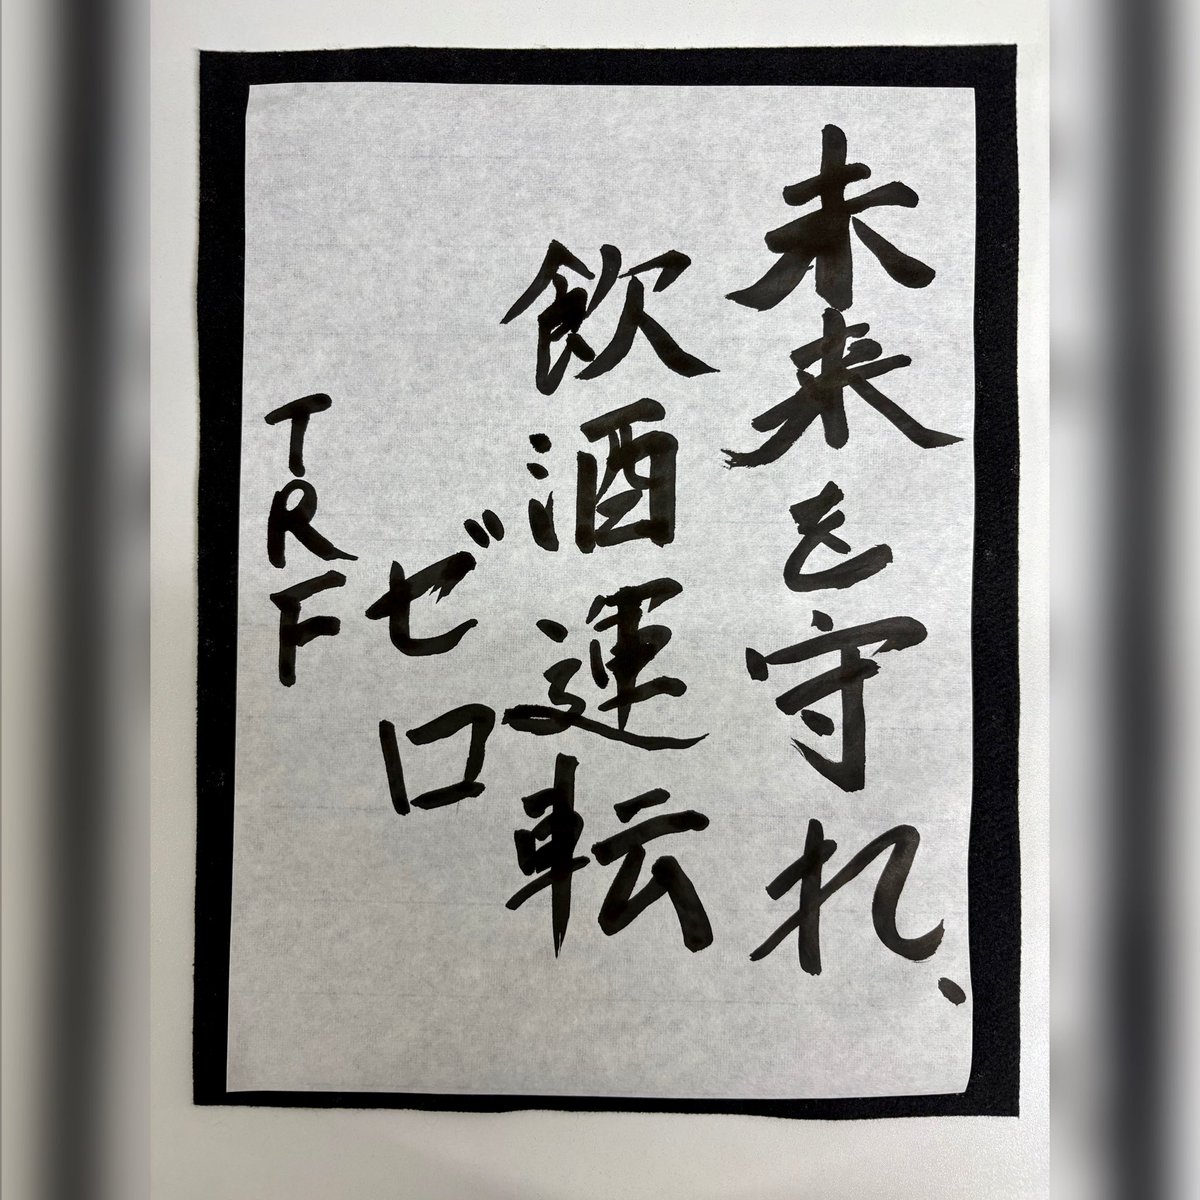 未来を守れ、
飲酒運転
ゼロ
TRF